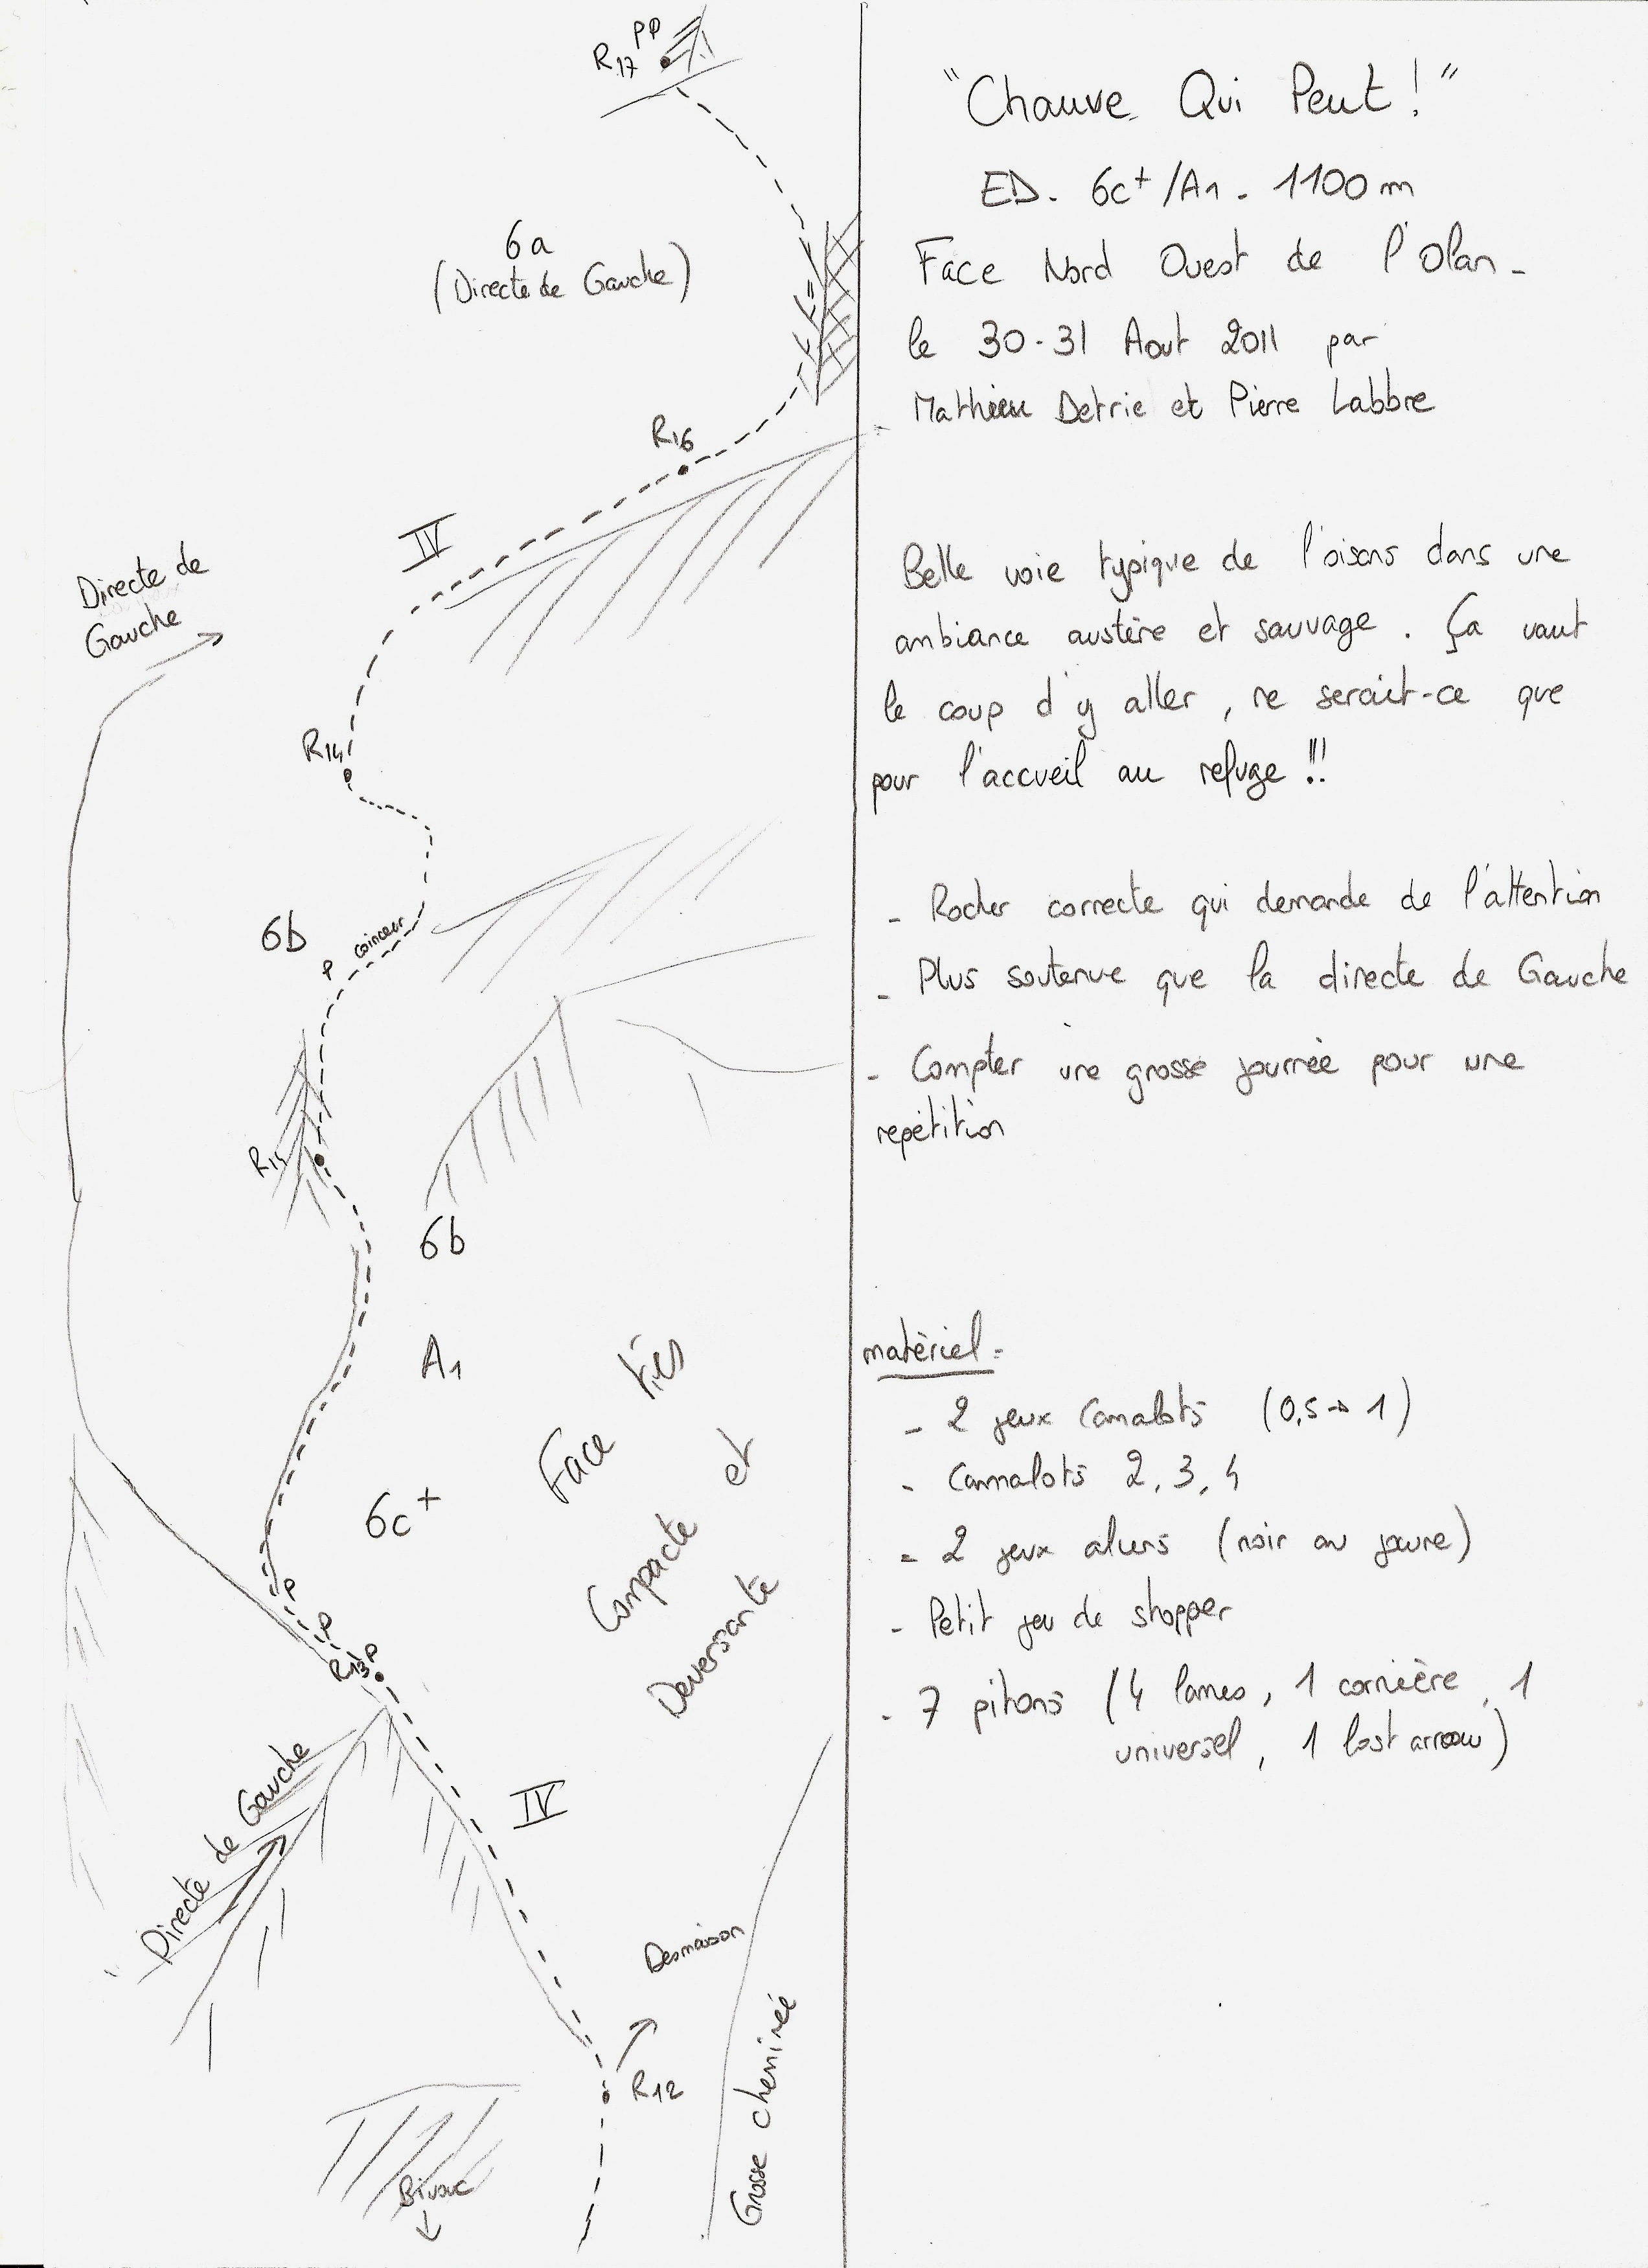 R17 PP
6a
(Directe de Gauche)
R16
IV
Directe de
Gauche
R14
6b
P coinceur
R14
6b
A1
6c+
Face très
Compacte et
Deversante
P
P
R13 P
Directe de Gauche
IV
Desmaison
R12
Grosse cheminée
Bivouac
"Chauve Qui Peut !"
ED. 6c+/A1 - 1100m
Face Nord Ouest de l'Olan -
le 30-31 Aout 2011 par
Mathieu Detrie et Pierre Labbre
Belle voie typique de l'oisans dans une
ambiance austère et sauvage. Ça vaut
le coup d'y aller, ne serait-ce que
pour l'accueil au refuge !!!
- Rocher correcte qui demande de l'attention
- Plus soutenue que la directe de Gauche
- Compter une grosse journée pour une
repétition
matériel =
- 2 jeux Camalots (0,5 → 1)
- Cammalots 2, 3, 4
- 2 jeux aliens (noir au jaune)
- Petit jeu de stopper
- 7 pitons (4 lames, 1 cornière, 1
universel, 1 lost arrow)